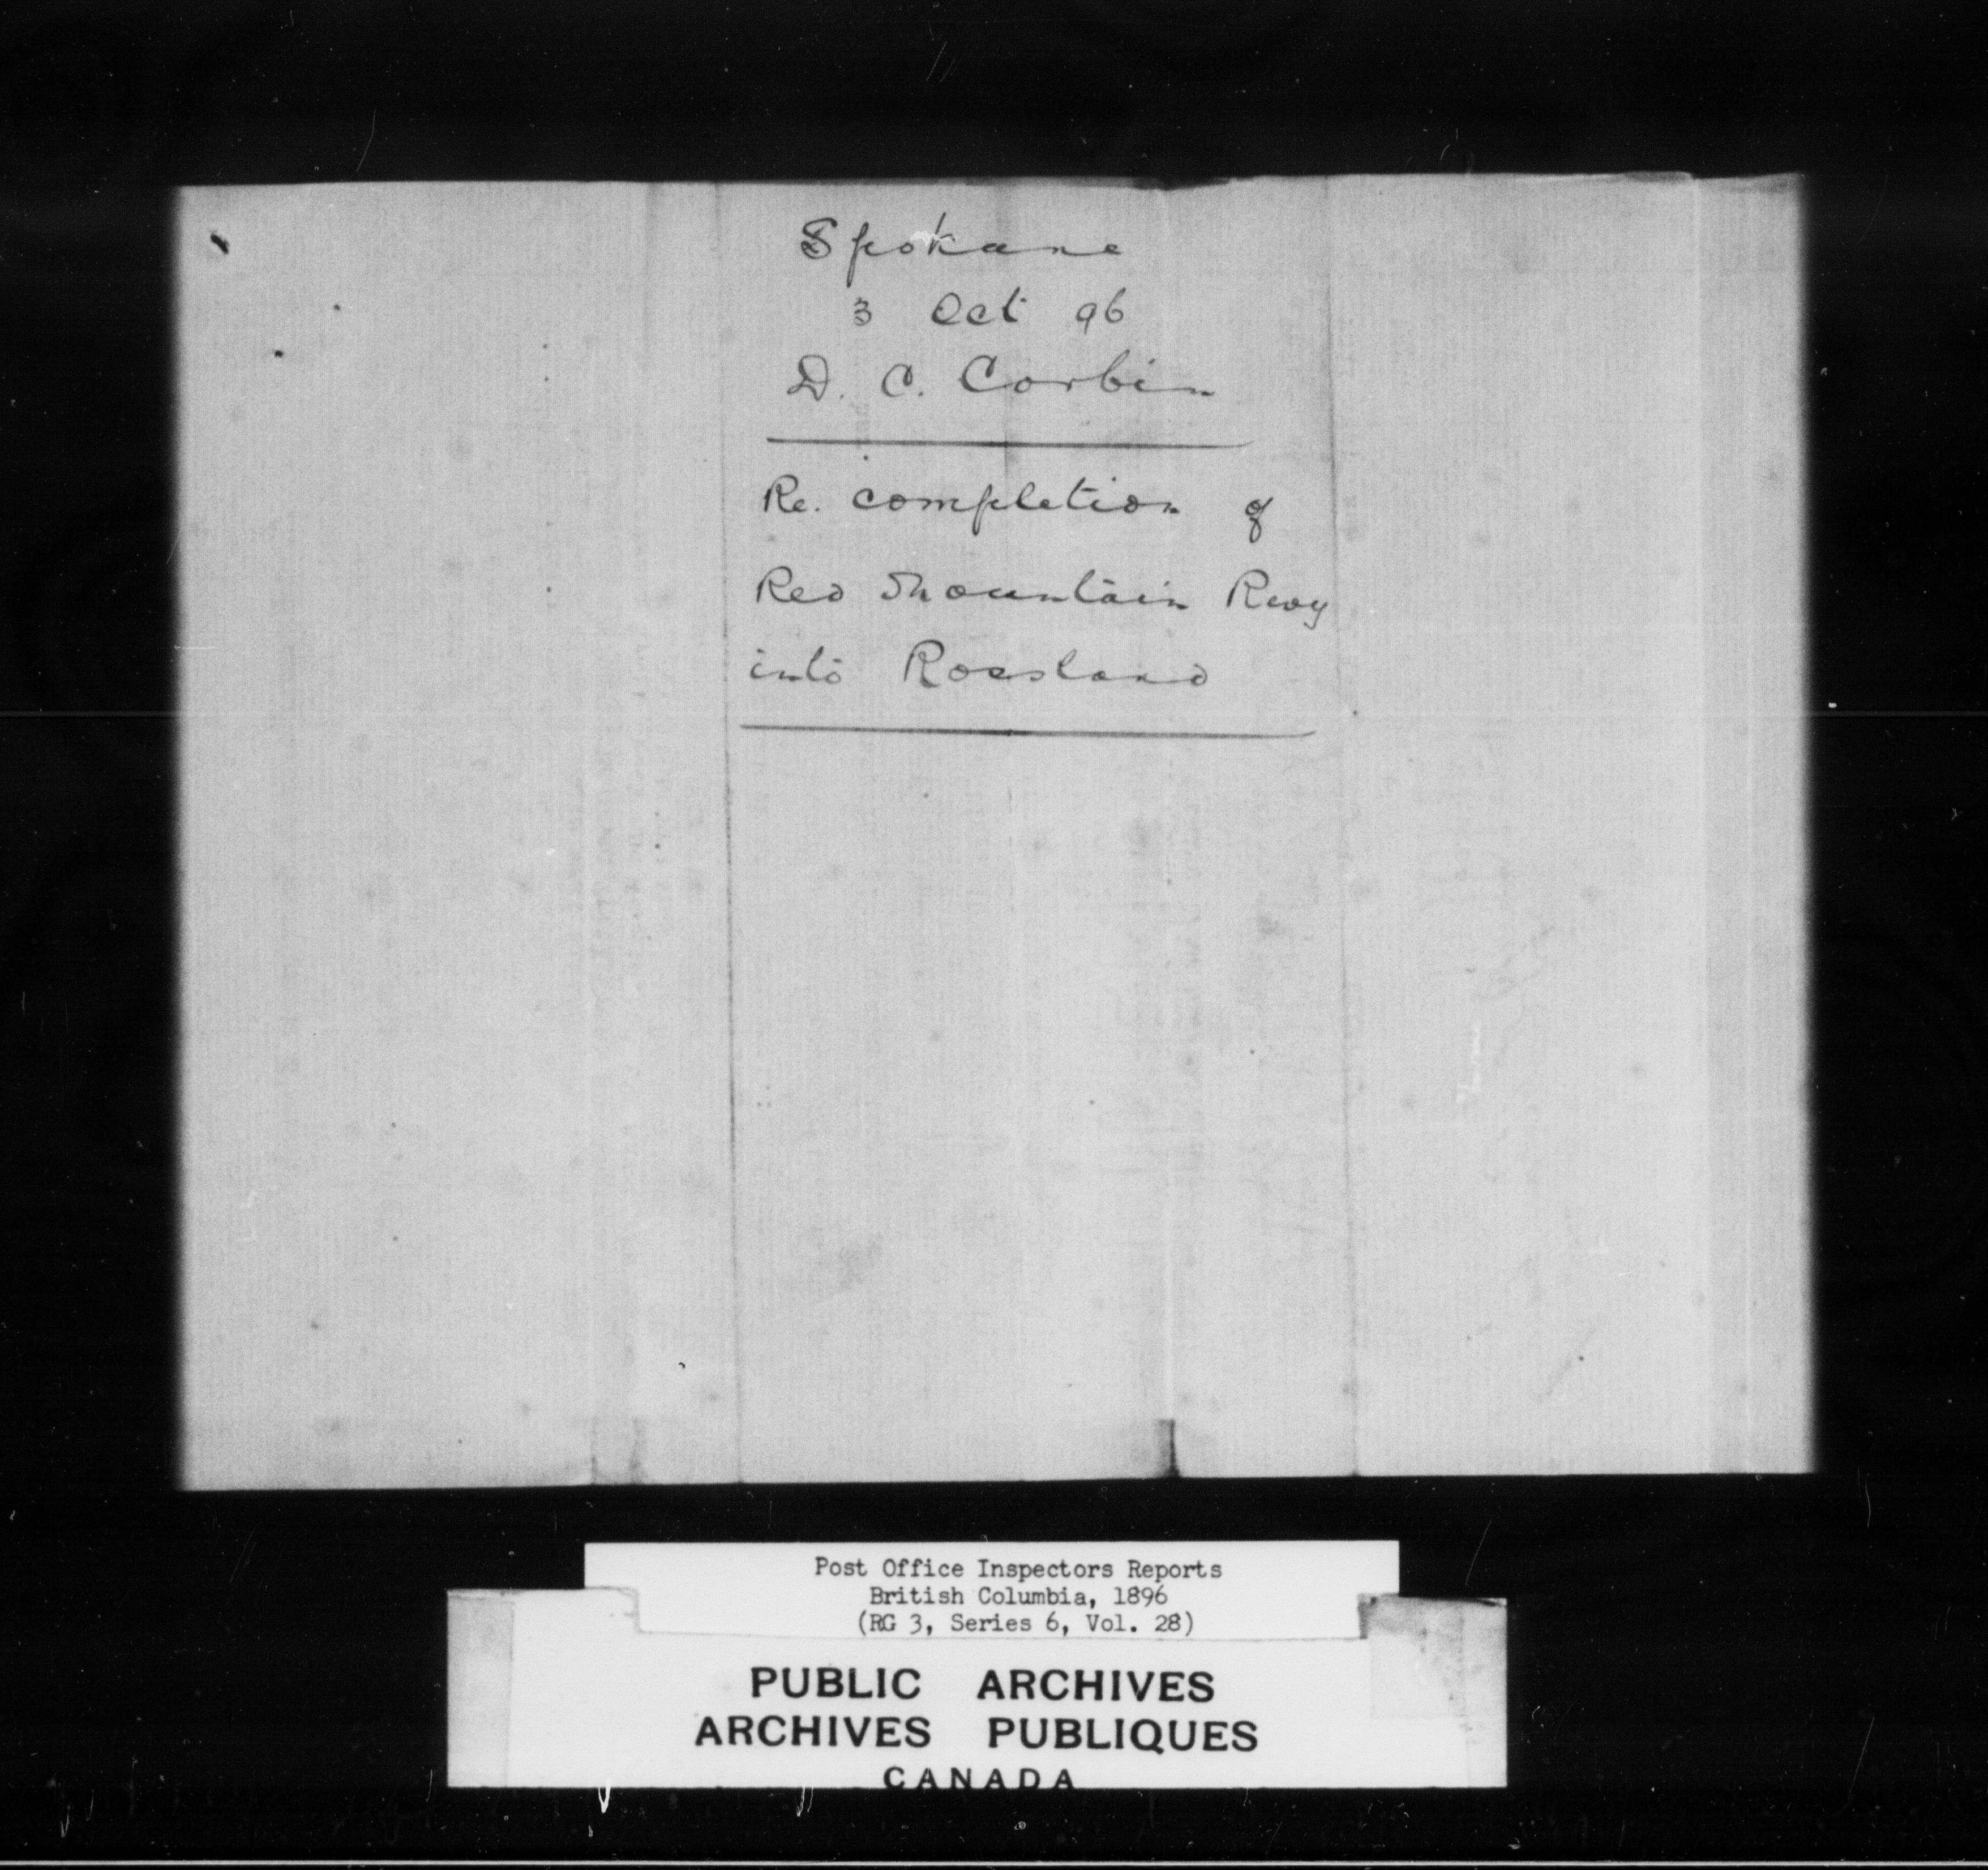 Spokane
3 Oct 96
D. C. Corbin
Re. completion of
Red Mountain Rwy
into Rossland
Post Office Inspectors Reports
British Columbia, 1896
(RG 3, Series 6, Vol. 28)
PUBLIC ARCHIVES
ARCHIVES PUBLIQUES
CANADA